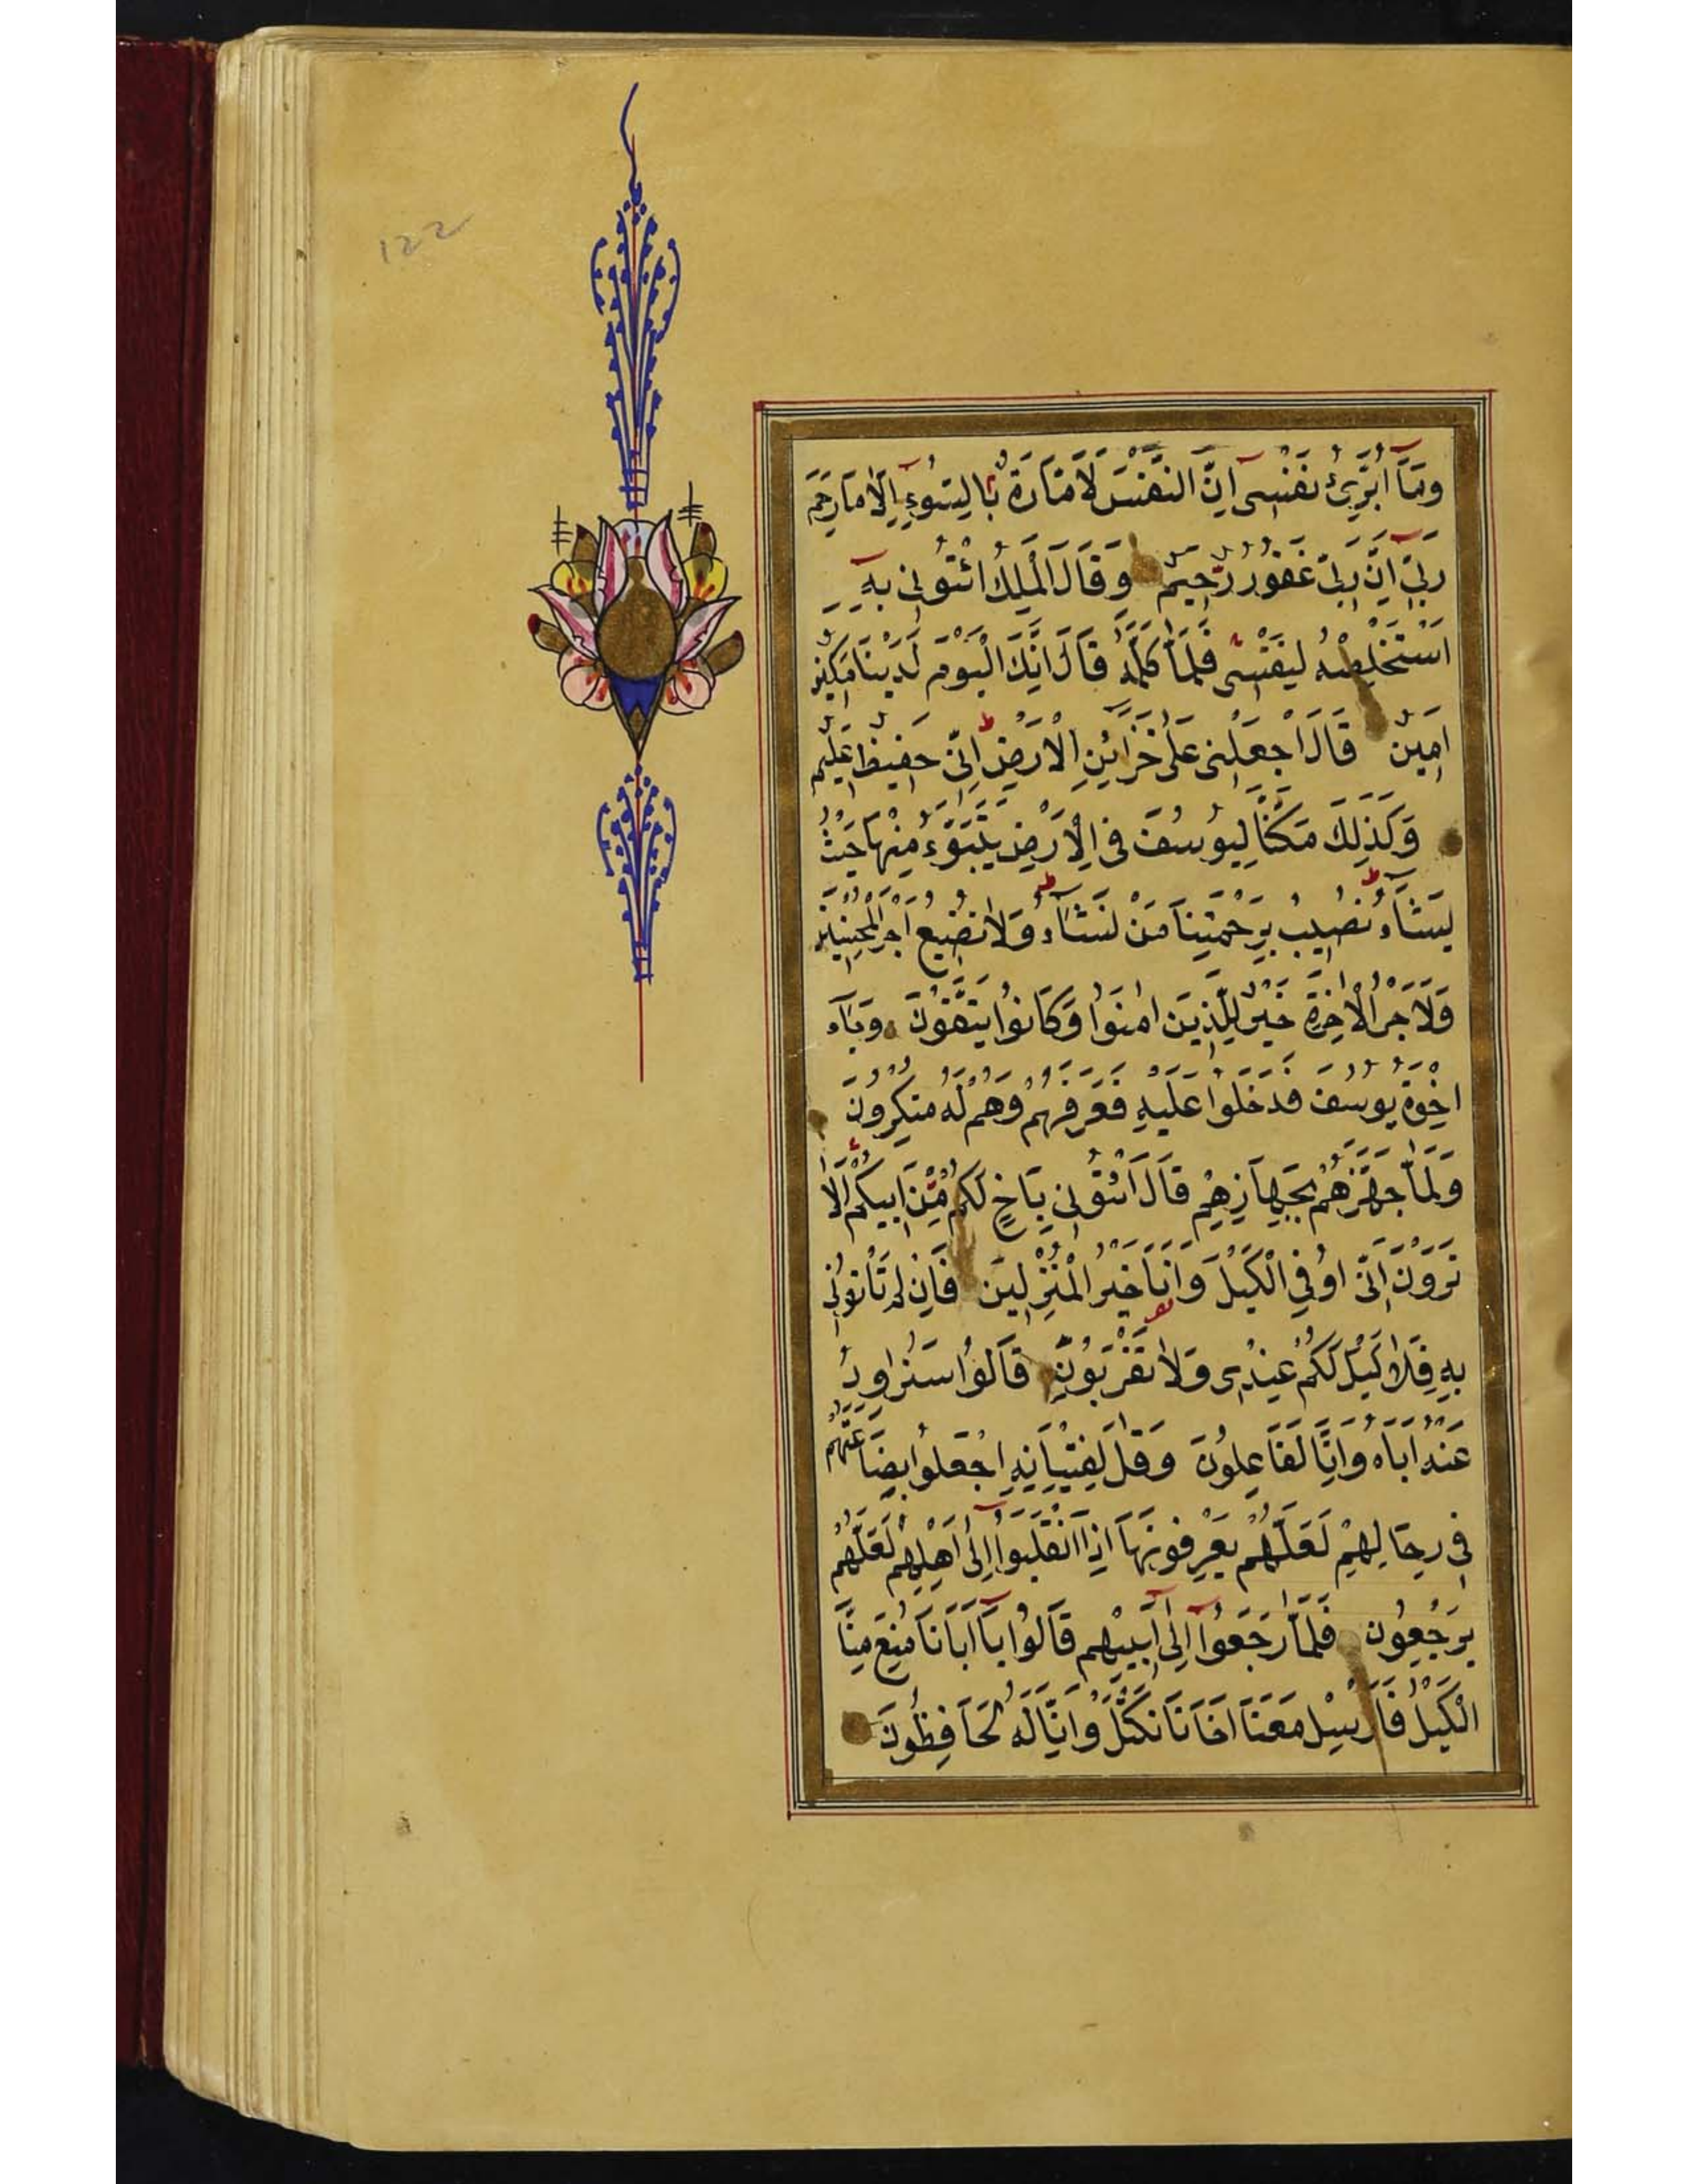 122
وَمَآ اُبَرِّئُ نَفْسِىٓ اِنَّ النَّفْسَ لَاَمَّارَةٌ بِالسُّوٓءِ اِلَّا مَا رَحِمَ
رَبِّىٓ اِنَّ رَبِّى غَفُورٌ رَحِيمٌ وَقَالَ الْمَلِكُ ائْتُونِى بِهِ
اَسْتَخْلِصْهُ لِنَفْسِى فَلَمَّا كَلَّمَهُ قَالَ اِنَّكَ الْيَوْمَ لَدَيْنَا مَكِينٌ
اَمِينٌ قَالَ اجْعَلْنِى عَلٰى خَزَآئِنِ الْاَرْضِ اِنِّى حَفِيظٌ عَلِيمٌ
وَكَذٰلِكَ مَكَّنَّا لِيُوسُفَ فِى الْاَرْضِ يَتَبَوَّءُ مِنْهَا حَيْثُ
يَشَآءُ نُصِيبُ بِرَحْمَتِنَا مَنْ نَشَآءُ وَلَا نُضِيعُ اَجْرَ الْمُحْسِنِينَ
وَلَاَجْرُ الْاٰخِرَةِ خَيْرٌ لِلَّذِينَ اٰمَنُوا وَكَانُوا يَتَّقُونَ وَجَآءَ
اِخْوَةُ يُوسُفَ فَدَخَلُوا عَلَيْهِ فَعَرَفَهُمْ وَهُمْ لَهُ مُنْكِرُونَ
وَلَمَّا جَهَّزَهُمْ بِجَهَازِهِمْ قَالَ ائْتُونِى بِاَخٍ لَكُمْ مِنْ اَبِيكُمْ اَلَا
تَرَوْنَ اَنِّى اُوفِى الْكَيْلَ وَاَنَا خَيْرُ الْمُنْزِلِينَ فَاِنْ لَمْ تَاْتُونِى
بِهِ فَلَا كَيْلَ لَكُمْ عِنْدِى وَلَا تَقْرَبُونِ قَالُوا سَنُرَاوِدُ
عَنْهُ اَبَاهُ وَاِنَّا لَفَاعِلُونَ وَقَالَ لِفِتْيَانِهِ اجْعَلُوا بِضَاعَتَهُمْ
فِى رِحَالِهِمْ لَعَلَّهُمْ يَعْرِفُونَهَا اِذَا انْقَلَبُوٓا اِلٰىٓ اَهْلِهِمْ لَعَلَّهُمْ
يَرْجِعُونَ فَلَمَّا رَجَعُوٓا اِلٰىٓ اَبِيهِمْ قَالُوا يَآ اَبَانَا مُنِعَ مِنَّا
الْكَيْلُ فَاَرْسِلْ مَعَنَا اَخَانَا نَكْتَلْ وَاِنَّا لَهُ لَحَافِظُونَ